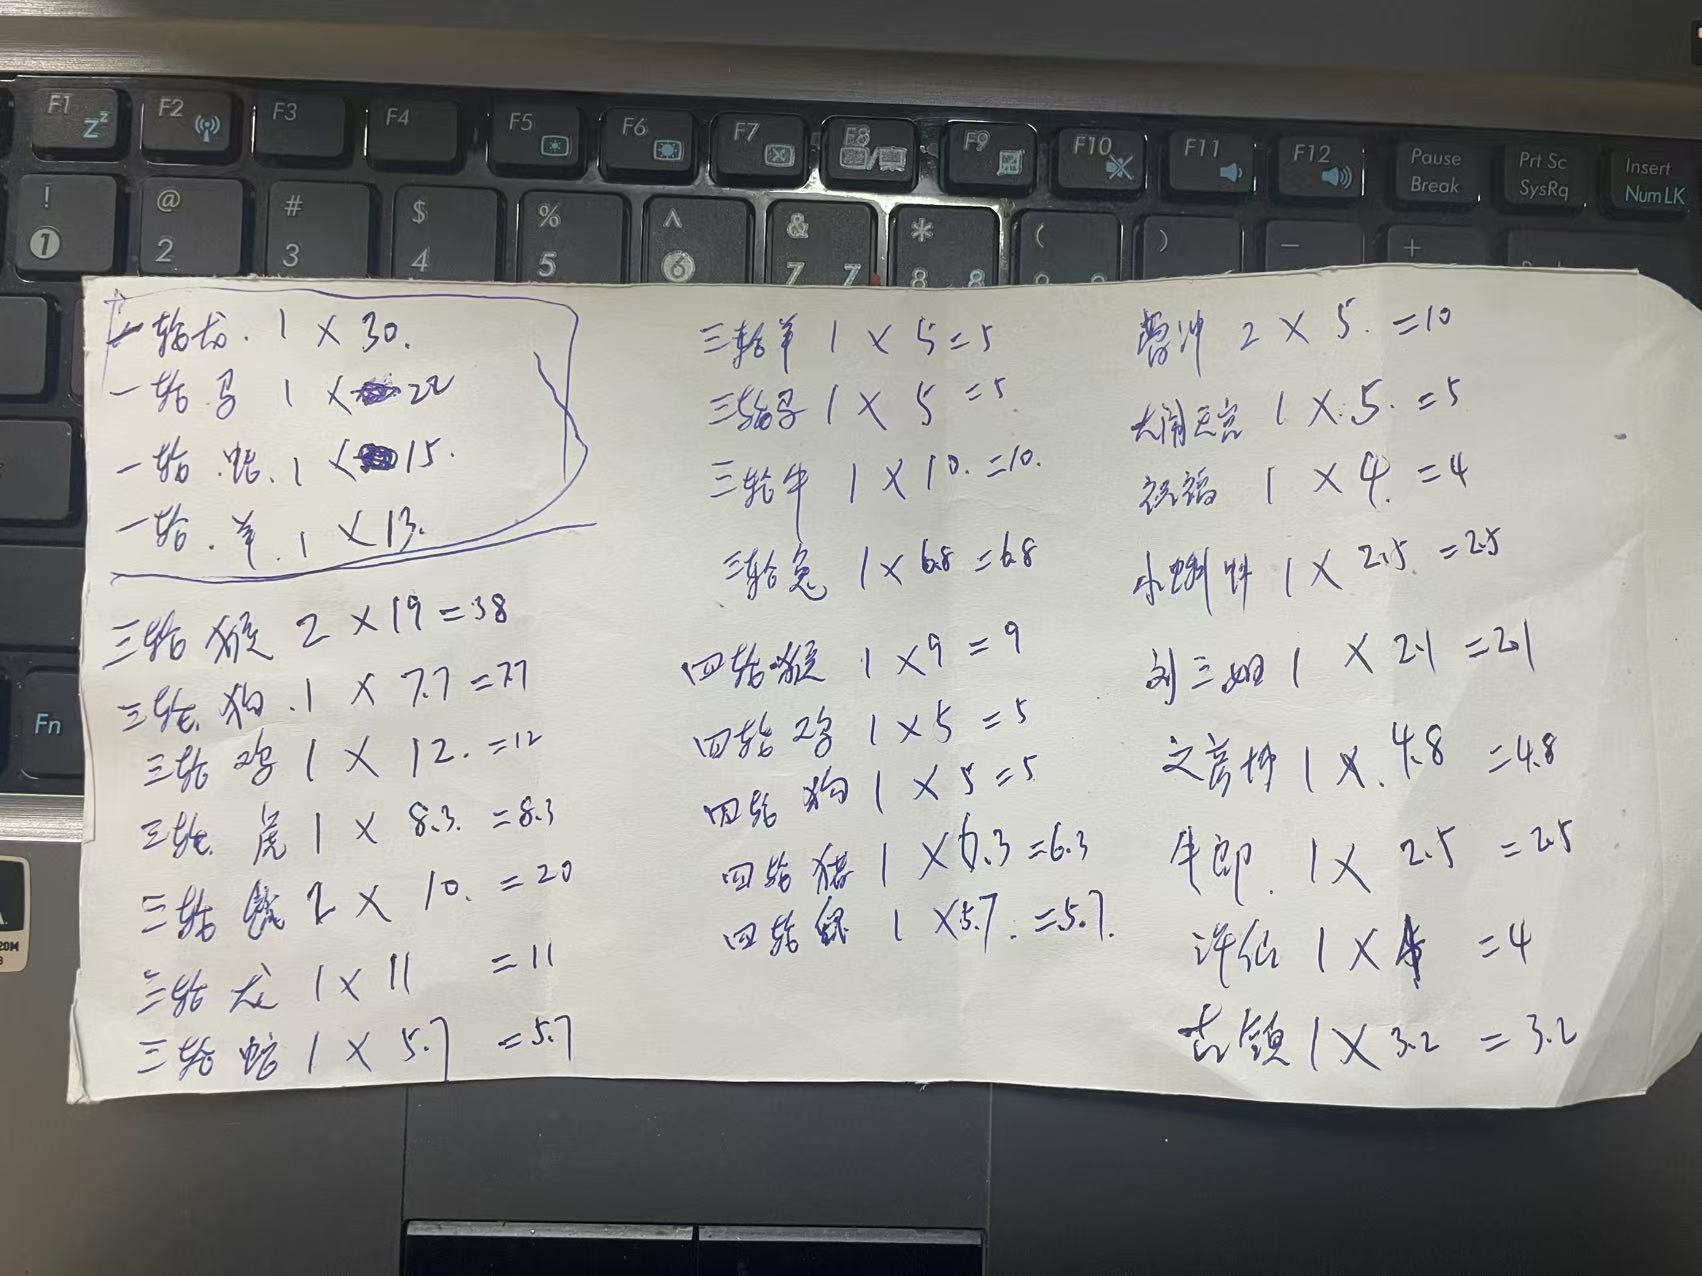 F1 F2 F3 F4 F5 F6 F7 F8 F9 F10 F11 F12 Pause Break Prt Sc SysRq Insert Num LK
! 1 @ 2 # 3 $ 4 % 5 ^ 6 & 7 7 * 8 8 ( ) - +
Fn
一轮龙.1×30.
一轮马 1×22
一轮.蛇.1×15.
一轮.羊.1×13.
三轮猴 2×19=38
三轮.狗.1×7.7=7.7
三轮鸡 1×12.=12
三轮.虎 1×8.3.=8.3
三轮 2×10.=20
三轮龙 1×11=11
三轮蛇 1×5.7=5.7
三轮羊 1×5=5
三轮马 1×5=5
三轮牛 1×10.=10.
三轮兔 1×6.8=6.8
四轮猴 1×9=9
四轮鸡 1×5=5
四轮狗 1×5=5
四轮猪 1×6.3=6.3
四轮 1×5.7.=5.7.
曹冲 2×5.=10
大闹天宫 1×5.=5
祝福 1×4.=4
小蝌蚪 1×2.5=2.5
刘三姐 1×2.1=2.1
文彦博 1×.4.8=4.8
牛郎.1×2.5=2.5
许仙 1×4=4
古镇 1×3.2=3.2